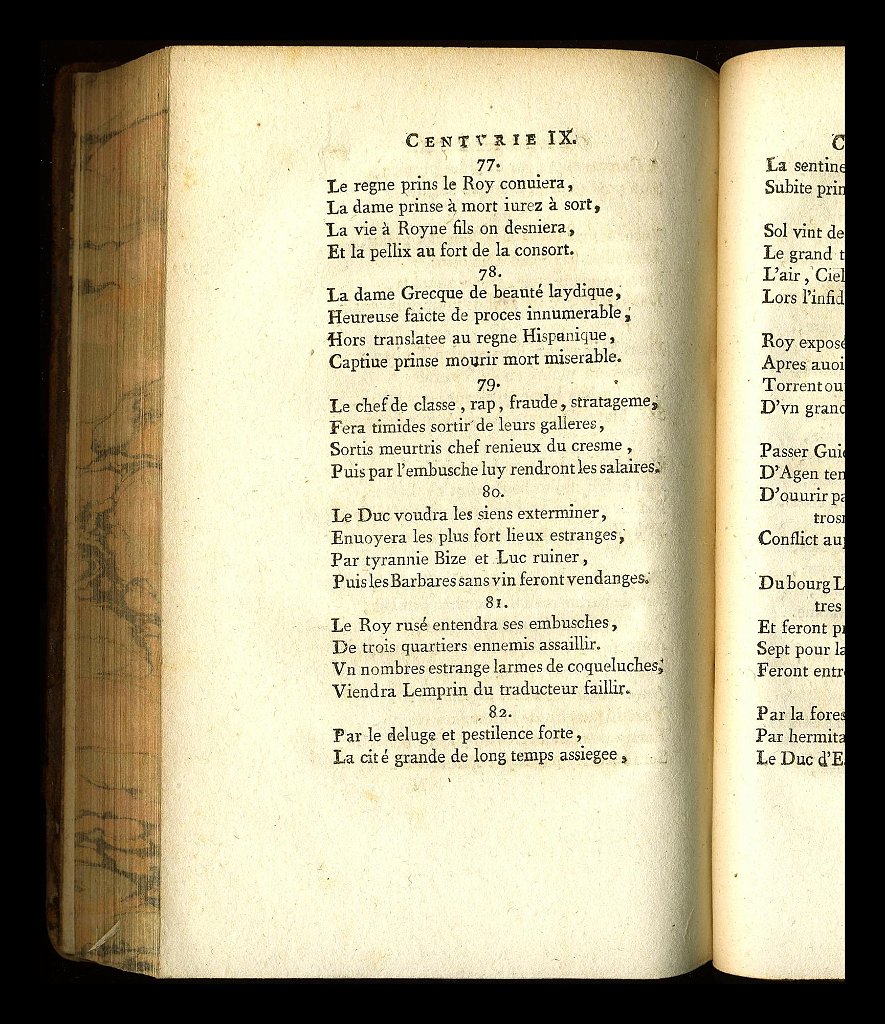 CENTVRIE IX.
77.
Le regne prins le Roy conuiera,
La dame prinse à mort iurez à sort,
La vie à Royne fils on desniera,
Et la pellix au fort de la consort.
78.
La dame Grecque de beauté laydique,
Heureuse faicte de proces innumerable,
Hors translatee au regne Hispanique,
Captiue prinse mourir mort miserable.
79.
Le chef de classe, rap, fraude, stratageme,
Fera timides sortir de leurs galleres,
Sortis meurtris chef renieux du cresme,
Puis par l'embusche luy rendront les salaires.
80.
Le Duc voudra les siens exterminer,
Enuoyera les plus fort lieux estranges,
Par tyrannie Bize et Luc ruiner,
Puis les Barbares sans vin feront vendanges.
81.
Le Roy rusé entendra ses embusches,
De trois quartiers ennemis assaillir.
Vn nombres estrange larmes de coqueluches,
Viendra Lemprin du traducteur faillir.
82.
Par le deluge et pestilence forte,
La cité grande de long temps assiegee,
C
La sentine
Subite prin
Sol vint de
Le grand t
L'air, Ciel
Lors l'infid
Roy exposé
Apres auoi
Torrent ou
D'vn grand
Passer Guie
D'Agen ten
D'ouurir pa
tros
Conflict au
Dubourg L
tres
Et feront p
Sept pour la
Feront entr
Par la fores
Par hermita
Le Duc d'E